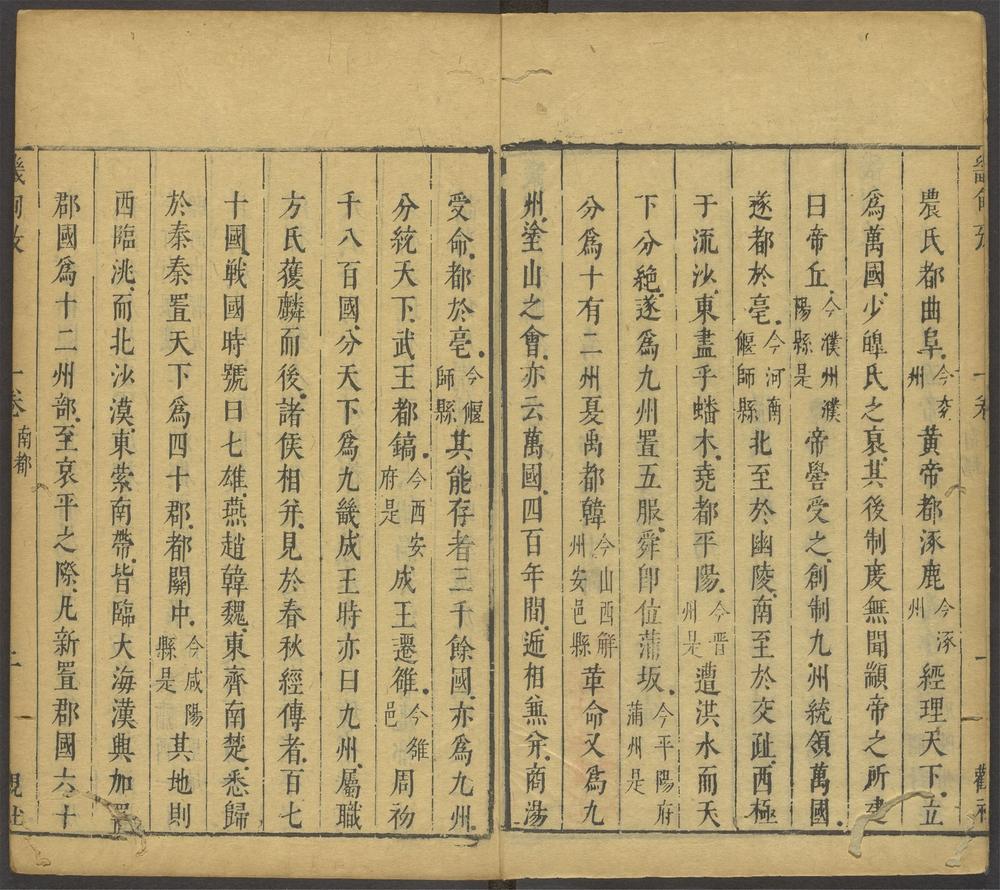 農氏都曲阜今兖州黃帝都涿鹿今涿州經理天下立
爲萬國少皥氏之衰其後制度無聞顓帝之所建
曰帝丘今濮州濮陽縣是帝嚳受之創制九州統領萬國
遂都於亳今河南偃師縣北至於幽陵南至於交趾西極
于流沙東盡乎蟠木堯都平陽今晋州是遭洪水而天
下分絶遂爲九州置五服舜卽位蒲坂今平陽府蒲州是
分爲十有二州夏禹都韓今山西解州安邑縣革命又爲九
州塗山之會亦云萬國四百年間逓相兼并商湯
受命都於亳今偃師縣其能存者三千餘國亦爲九州
分統天下武王都鎬今西安府是成王遷雒今雒邑周初
千八百國分天下爲九畿成王時亦曰九州屬職
方氏獲麟而後諸侯相并見於春秋經傳者百七
十國戰國時號曰七雄燕趙韓魏東齊南楚悉歸
於秦秦置天下爲四十郡都關中今咸陽縣是其地則
西臨洮而北沙漠東縈南帶皆臨大海漢興加置
郡國爲十二州部至哀平之際凡新置郡國六十
一卷 南都
二